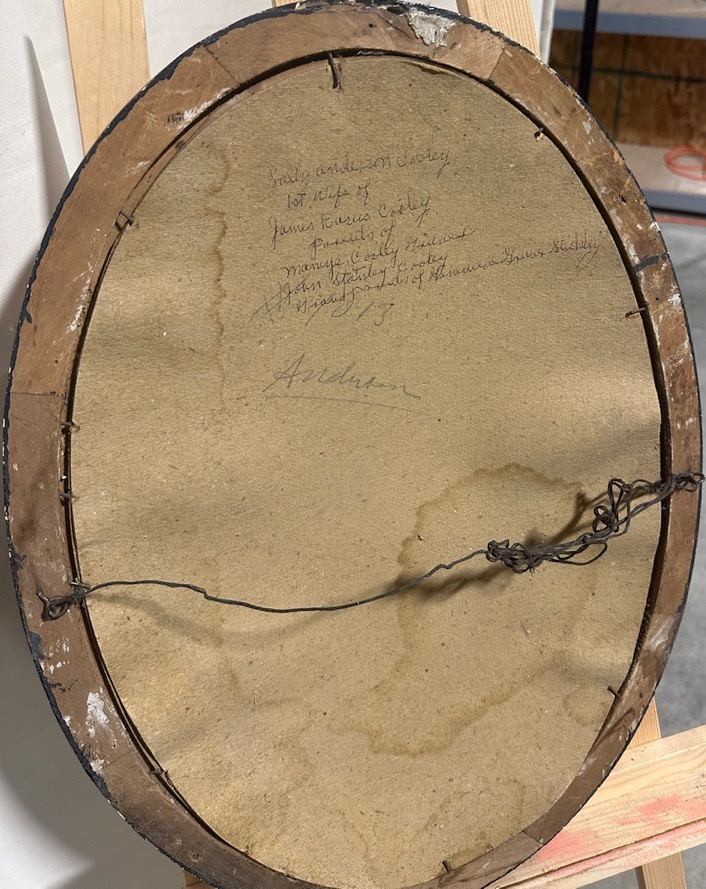 Sally Anderson Cooley
1st. Wife of
James Cooley
parents of
Mamye Cooley
John Stanley Cooley
Grandparents of
Anderson